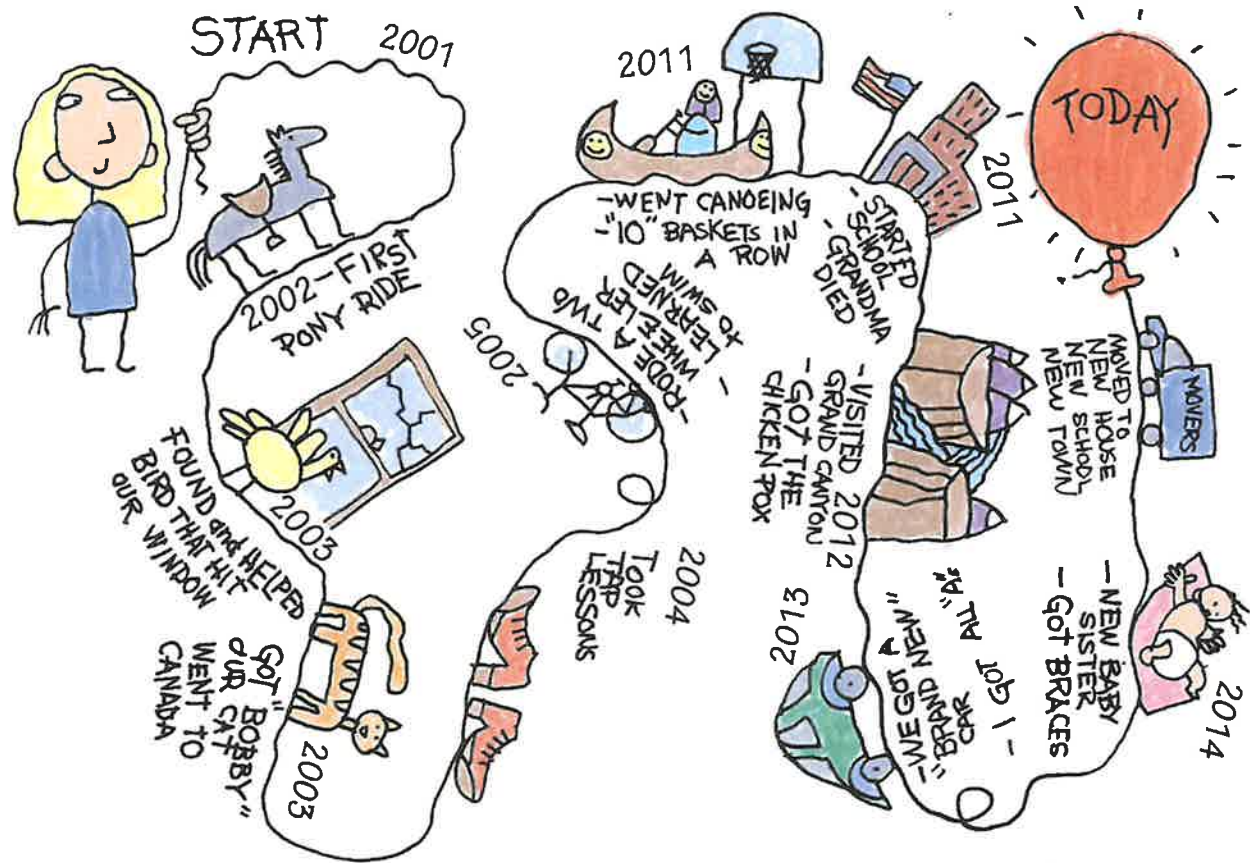 START
2001
2002-FIRST
PONY RIDE
FOUND and HELPED
BIRD THAT HIT
OUR WINDOW
2003
GOT "BOBBY"
OUR CAT
WENT TO
CANADA
2003
2004
TOOK
TAP
LESSONS
2005
-RODE A TWO
WHEELER
- LEARNED
TO SWIM
2011
-WENT CANOEING
-"10" BASKETS IN
A ROW
2011
-STARTED
SCHOOL
-GRANDMA
DIED
-VISITED 2012
GRAND CANYON
-GOT THE
CHICKEN POX
2013
-WE GOT A
"BRAND NEW"
CAR
- I GOT ALL "A"s
2014
-NEW BABY
SISTER
-GOT BRACES
MOVED TO
NEW HOUSE
NEW SCHOOL
NEW TOWN
MOVERS
TODAY